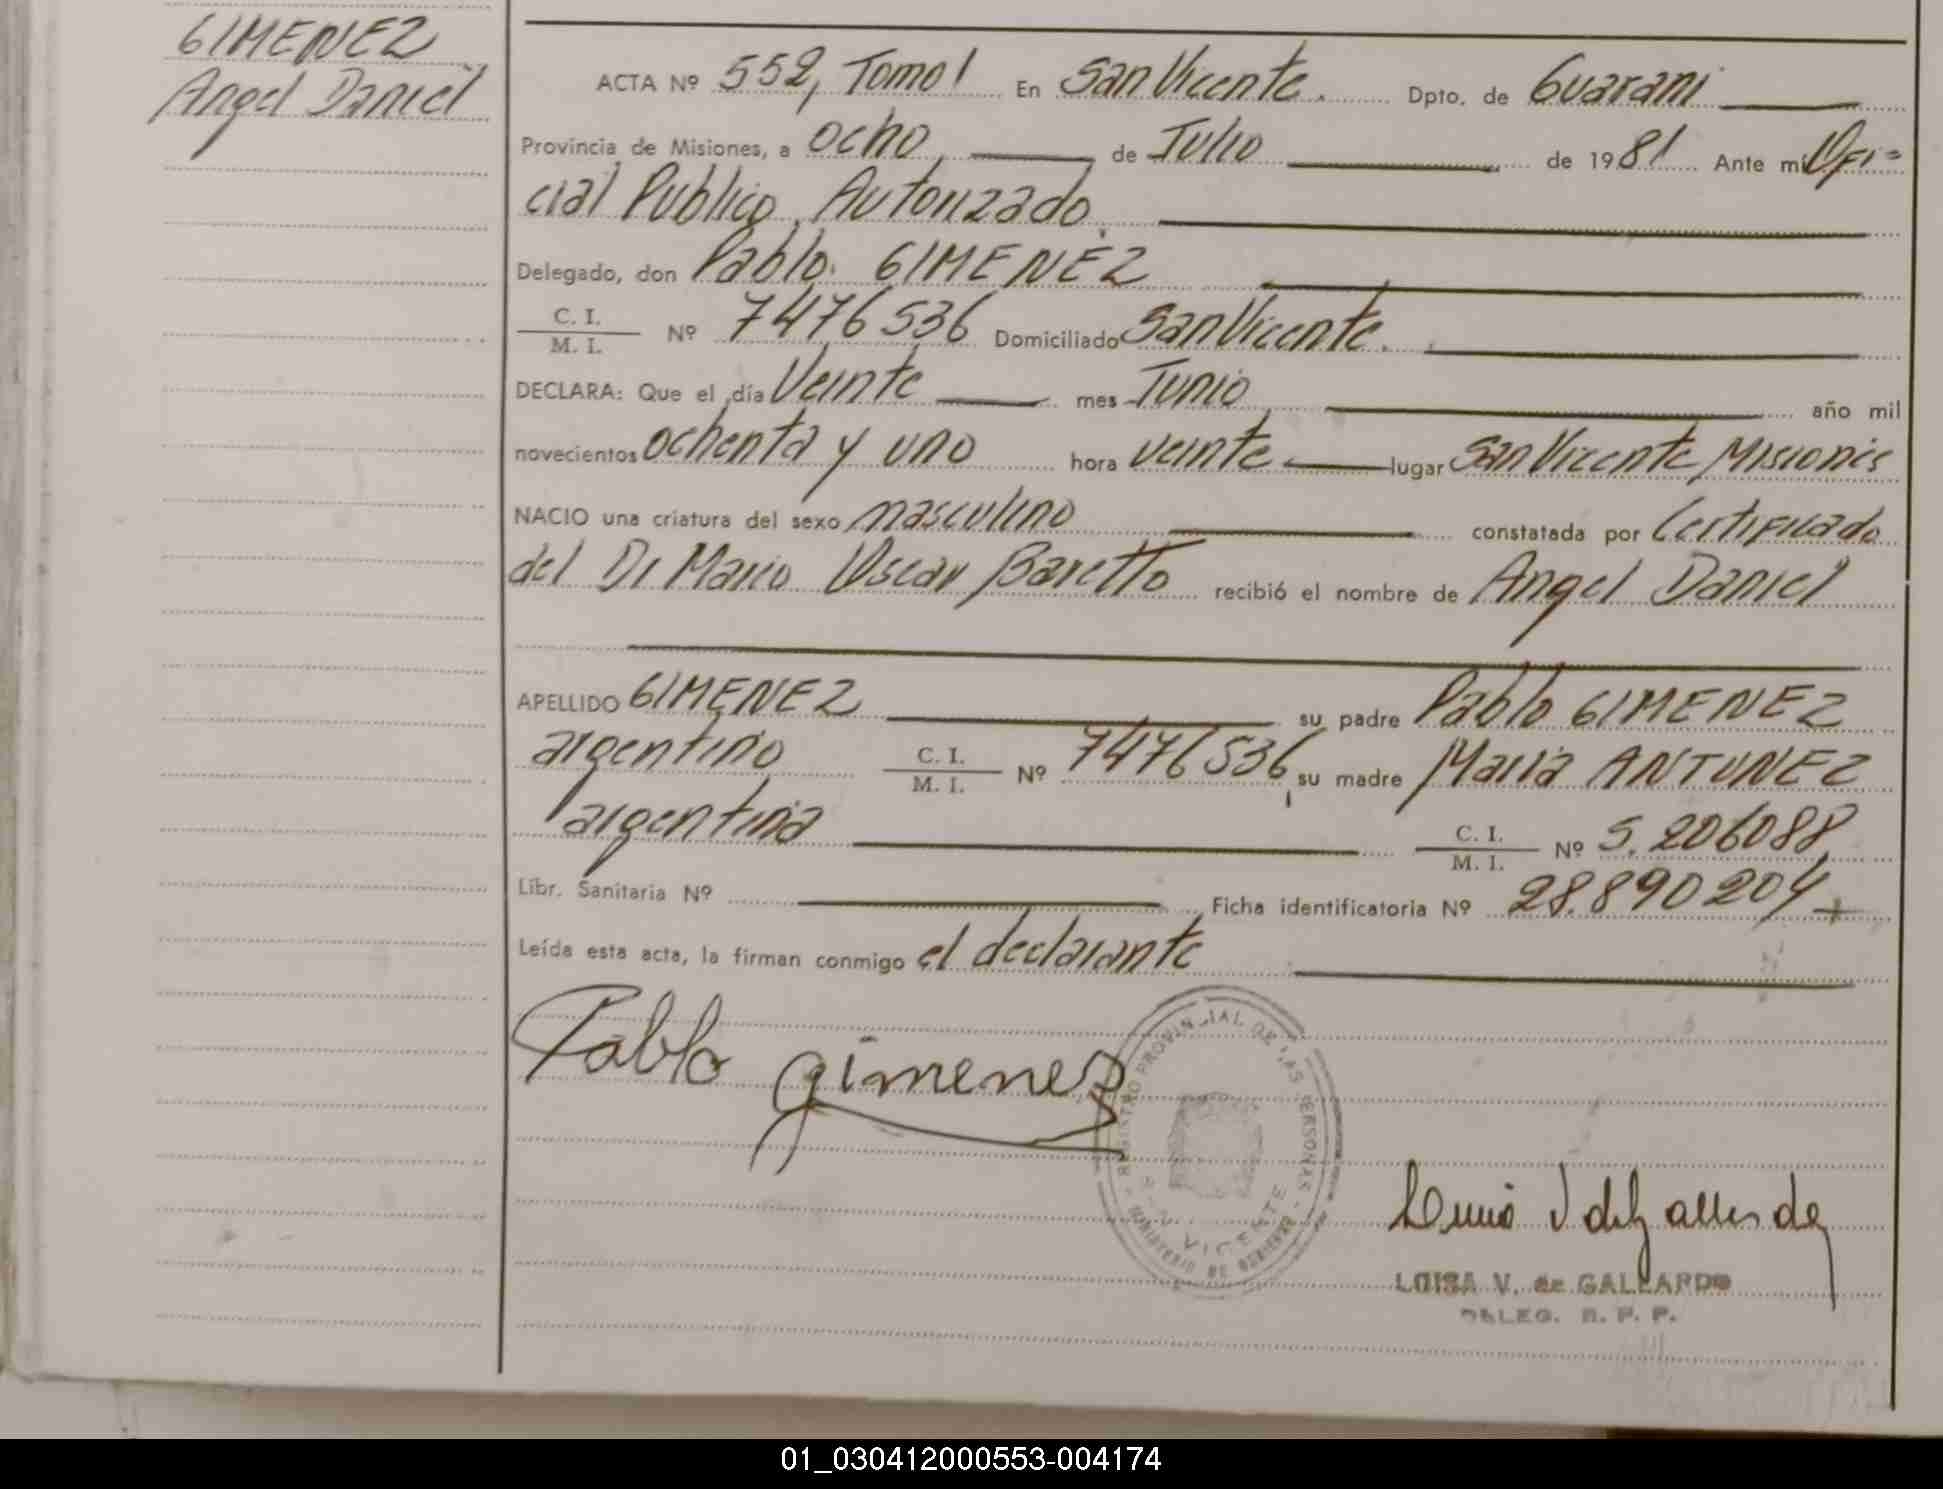 GIMENEZ
Angel Daniel
ACTA Nº 552, Tomo I En San Vicente. Dpto. de Guarani
Provincia de Misiones, a ocho, de Julio de 1981 Ante mí Ofi=
cial Publico Autorizado,
Delegado, don Pablo GIMENEZ
C. I.
M. I. Nº 7476536 Domiciliado San Vicente.
DECLARA: Que el día Veinte mes Junio año mil
novecientos ochenta y uno hora veinte lugar San Vicente Misiones
NACIO una criatura del sexo masculino constatada por Certificado
del Dr Mario Oscar Baretto recibió el nombre de Angel Daniel
APELLIDO GIMENEZ su padre Pablo GIMENEZ
argentino C. I.
M. I. Nº 7476536, su madre Maria ANTUNEZ
argentina C. I.
M. I. Nº 5.206088
Libr. Sanitaria Nº Ficha identificatoria Nº 28.890204
Leída esta acta, la firman conmigo el declarante
Pablo gimenez
REGISTRO PROVINCIAL DE LAS PERSONAS - MINISTERIO DE GOBIERNO -
VICENTE
LUISA V. de GALLARDO
DELEG. R. P. P.
01_030412000553-004174